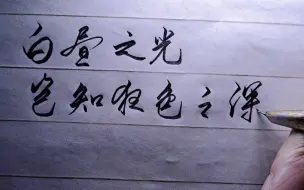 白昼之光
岂知夜色之深